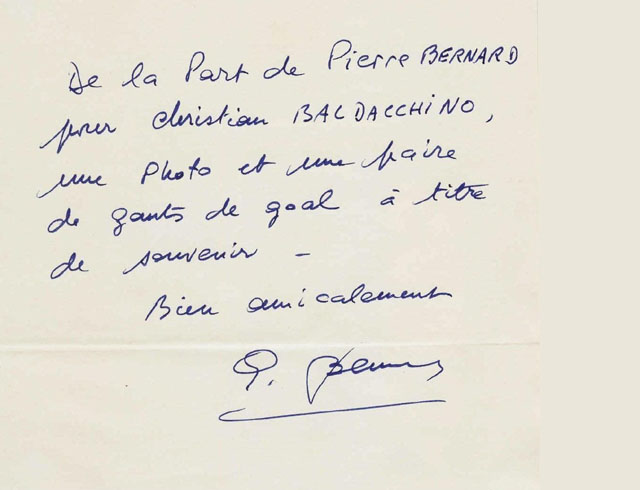 De la Part de Pierre BERNARD
pour Christian BALDACCHINO,
une Photo et une paire
de gants de goal à titre
de souvenir -
Bien amicalement
P. Bernard